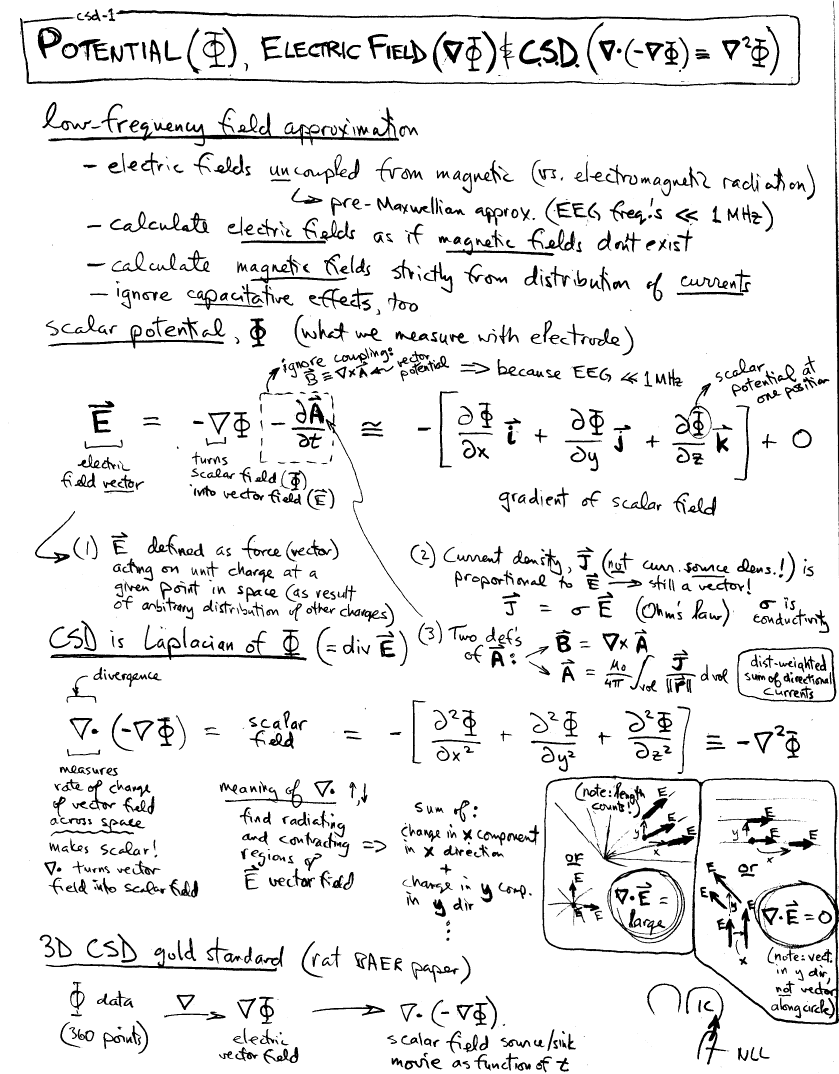 csd-1
POTENTIAL (Φ), ELECTRIC FIELD (∇Φ) & C.S.D. (∇·(-∇Φ) = ∇²Φ)
low-frequency field approximation
- electric fields uncoupled from magnetic (vs. electromagnetic radiation)
↳ pre-Maxwellian approx. (EEG freq.'s << 1 MHz)
- calculate electric fields as if magnetic fields don't exist
- calculate magnetic fields strictly from distribution of currents
- ignore capacitative effects, too
scalar potential, Φ (what we measure with electrode)
ignore coupling: B⃗ ≡ ∇×A⃗ ← vector potential ⇒ because EEG << 1MHz
scalar potential at one position
E⃗ = -∇Φ - ∂A⃗/∂t ≅ -[∂Φ/∂x i⃗ + ∂Φ/∂y j⃗ + ∂Φ/∂z k⃗] + 0
electric field vector
turns scalar field (Φ) into vector field (E⃗)
gradient of scalar field
(1) E⃗ defined as force (vector)
acting on unit charge at a
given point in space (as result
of arbitrary distribution of other charges)
(2) Current density, J⃗ (not curr. source dens.!) is
proportional to E⃗ → still a vector!
J⃗ = σE⃗ (Ohm's law) σ is conductivity
CSD is Laplacian of Φ (= div E⃗)
(3) Two def's of A⃗: B⃗ = ∇×A⃗
A⃗ = μ₀/4π ∫vol J⃗/‖r⃗‖ dvol
dist-weighted
sum of directional
currents
divergence
∇·(-∇Φ) = scalar field = -[∂²Φ/∂x² + ∂²Φ/∂y² + ∂²Φ/∂z²] ≡ -∇²Φ
measures
rate of change
of vector field
across space
makes scalar!
∇· turns vector
field into scalar field
meaning of ∇· ↑,↓
find radiating
and contracting
regions of
E⃗ vector field
⇒
sum of:
change in x component
in x direction
+
change in y comp.
in y dir
⋮
(note: length
counts!)
E
E
y
x
E
or
E
E
E
∇·E⃗ =
large
E
y
E
E
x
or
E
E
y
E
E
x
∇·E⃗ = 0
(note: vect.
in y dir,
not vector
along circle)
3D CSD gold standard (rat BAER paper)
Φ data
(360 points)
∇→
∇Φ
electric
vector field
→
∇·(-∇Φ)
scalar field source/sink
movie as function of t
IC
NLL